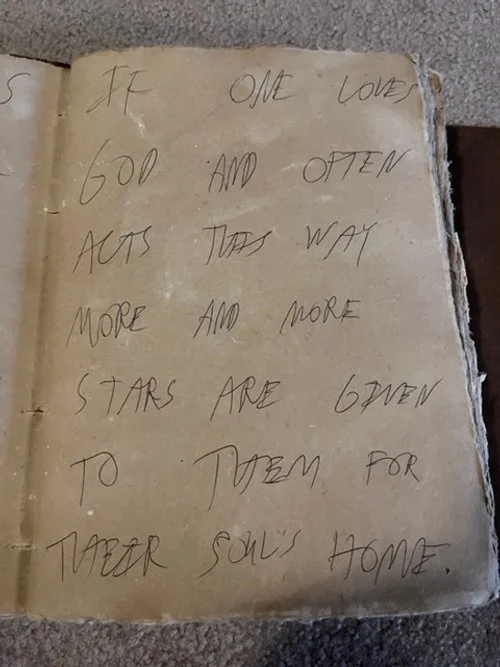 S
IF ONE LOVES
GOD AND OFTEN
ACTS THIS WAY
MORE AND MORE
STARS ARE GIVEN
TO THEM FOR
THEIR SOUL'S HOME.